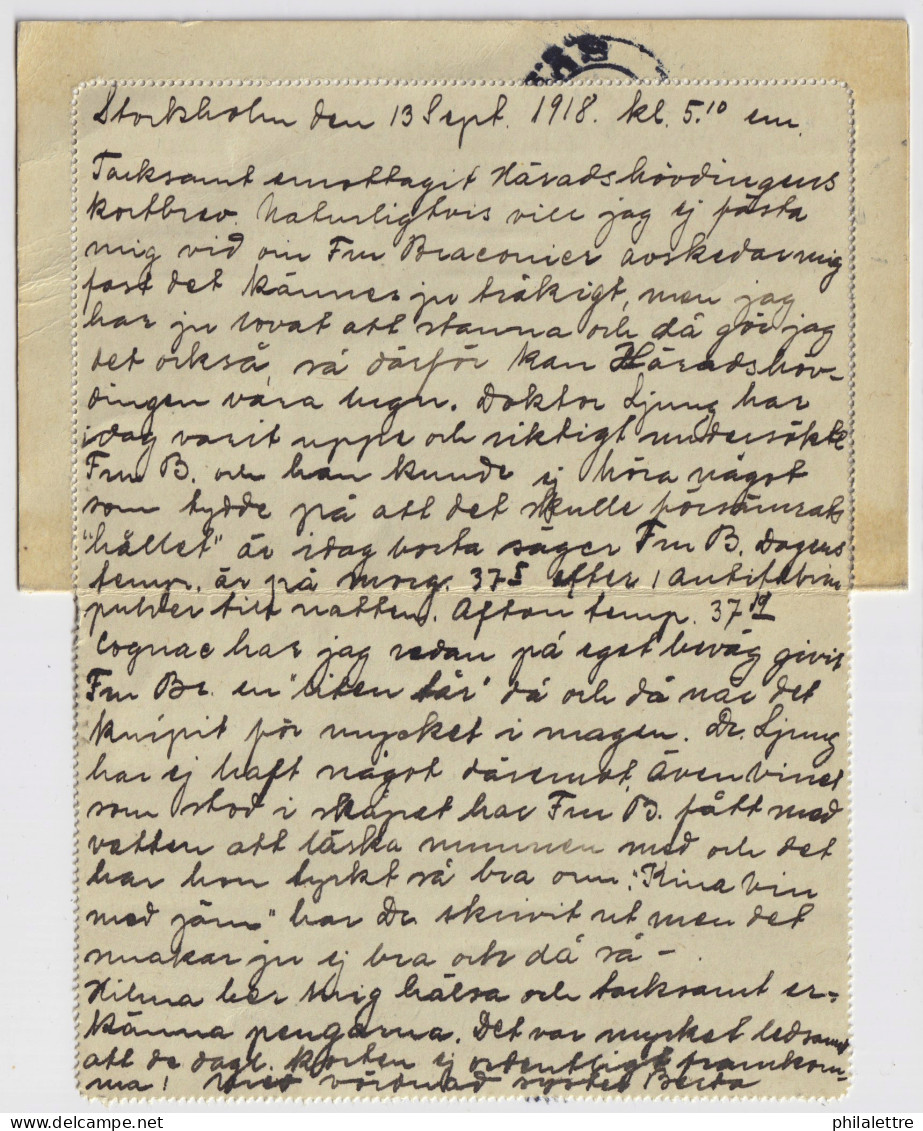 Stockholm den 13 Sept. 1918. kl. 5.10 em.
Tacksamt emottagit Häradshövdingens
kortbrev. Naturligtvis vill jag ej fästa
mig vid om Fru Braconier avskedar mig
fast det kännes ju tråkigt, men jag
har ju lovat att stanna och då gör jag
det också, så därför kan Häradshöv-
dingen vara lugn. Doktor Ljung har
idag varit uppe och riktigt undersökt
Fru B. och han kunde ej höra något
som tydde på att det skulle försämrats
"hållet" är idag borta säger Fru B. Dagens
temp. är på morg. 37.5 efter 1 Antifebrin
pulver till natten. Afton temp. 37.19
Cognac har jag redan på eget bevåg givit
Fru Br. en "liten tår" då och då när det
knipit för mycket i magen. Dr. Ljung
har ej haft något däremot. Även vinet
som stod i skåpet har Fru B. fått med
vatten att läska munnen med och det
har hon tyckt så bra om. "Kina vin
med järn" har Dr. skrivit ut men det
smakar ju ej bra och då så –
Hilma ber mig hälsa och tacksamt er-
känna pengarna. Det var mycket ledsamt
att de dagl. korten ej ordentligt framkom-
ma! Med vördnad syster Berta
philalettre